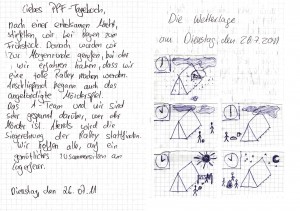 Liebes PPF-Tagebuch,
nach einer erholsamen Nacht,
wir bei Regen zum
Frühstück. Danach wurden wir
zur Morgenrunde gerufen, bei der
wir erfahren haben, dass wir
eine tolle Ralley machen werden.
Anschließend begann auch das
angekündigte Mörderspiel.
Das A-Team und wir sind
sehr gespannt darüber, wer der
Mörder ist. Abends wird die
Siegerehrung der Ralley stattfinden.
Wir hoffen alle, auf ein
gemütliches Zusammensitzen am
Lagerfeuer.
Dienstag, den 26.07.11
Die Wetterlage
am Dienstag, den 26.7.2011